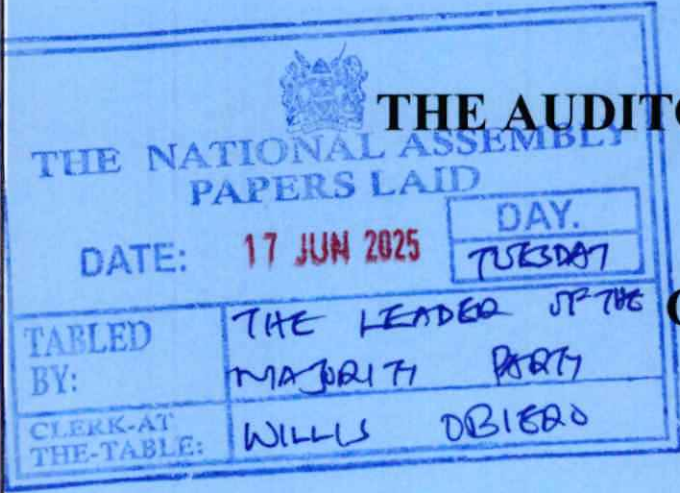 THE AUDITO
THE NATIONAL ASSEMBLY
PAPERS LAID
DATE: 17 JUN 2025
DAY.
TUESDAY
TABLED BY: THE LEADER OF THE MAJORITY PARTY
CLERK-AT THE-TABLE: WILLIS OBIERO